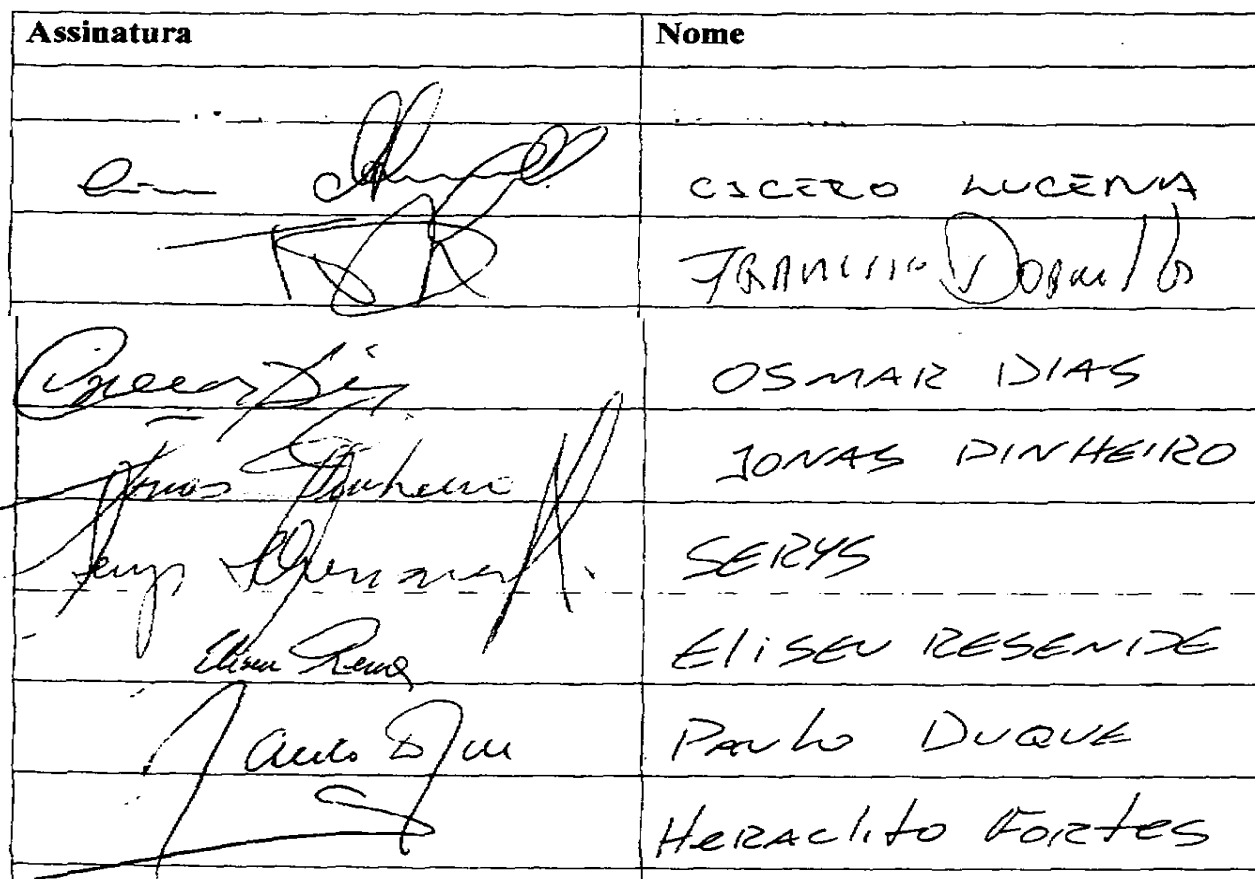 Assinatura Nome
CICERO LUCENA
FRANCISCO DORNELLES
OSMAR DIAS
Jonas Pinheiro JONAS PINHEIRO
SERYS
Eliseu Resende ELISEU RESENDE
Paulo Duque PAULO DUQUE
HERACLITO FORTES